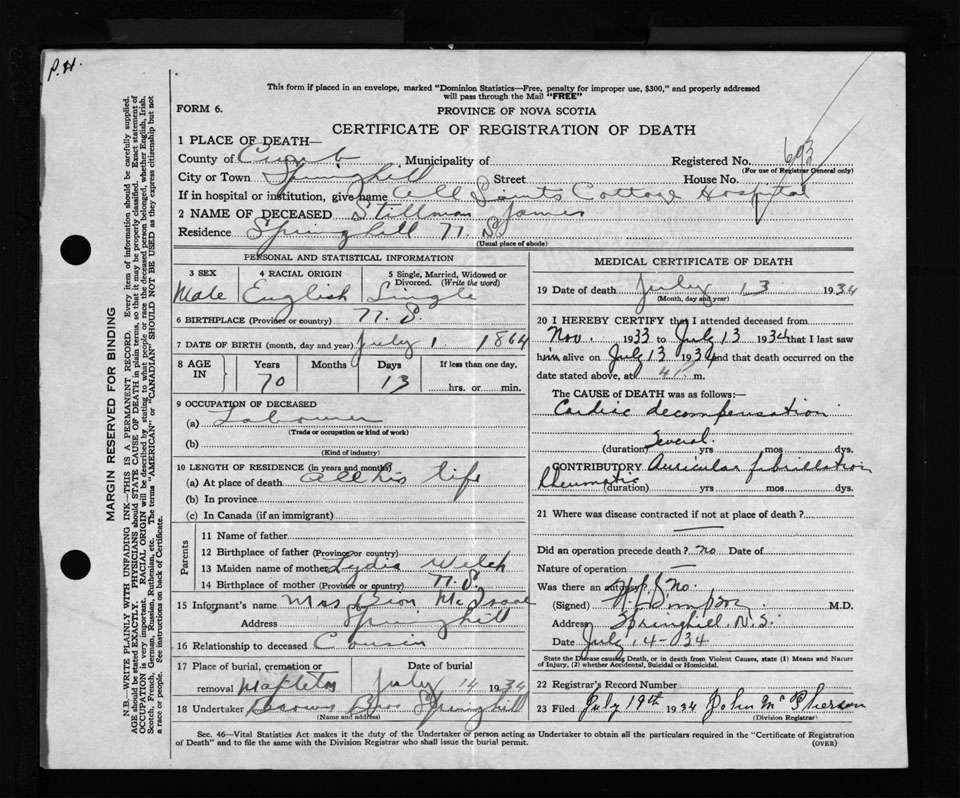 P.H.
This form if placed in an envelope, marked "Dominion Statistics—Free, penalty for improper use, $300," and properly addressed
will pass through the Mail "FREE"
FORM 6.
PROVINCE OF NOVA SCOTIA
CERTIFICATE OF REGISTRATION OF DEATH
1 PLACE OF DEATH—
County of Cumb Municipality of Registered No. 693
(For use of Registrar General only)
City or Town Springhill Street House No.
If in hospital or institution, give name All Saints Cottage Hospital
2 NAME OF DECEASED Stillman James
Residence Springhill N.S.
(Usual place of abode)
PERSONAL AND STATISTICAL INFORMATION
3 SEX 4 RACIAL ORIGIN 5 Single, Married, Widowed or
Divorced. (Write the word)
Male English Single
6 BIRTHPLACE (Province or country) N.S.
7 DATE OF BIRTH (month, day and year) July 1 1864
8 AGE IN Years Months Days If less than one day,
70 13 hrs. or min.
9 OCCUPATION OF DECEASED
(a) Labourer
(Trade or occupation or kind of work)
(b)
(Kind of industry)
10 LENGTH OF RESIDENCE (in years and months)
(a) At place of death All his life
(b) In province
(c) In Canada (if an immigrant)
Parents
11 Name of father
12 Birthplace of father (Province or country)
13 Maiden name of mother Lydia Welch
14 Birthplace of mother (Province or country) N.S.
15 Informant's name Mrs McIsaac
Address Springhill
16 Relationship to deceased Cousin
17 Place of burial, cremation or Date of burial
removal Mapleton July 14 1934
18 Undertaker Browns Bros Springhill
(Name and address)
MEDICAL CERTIFICATE OF DEATH
19 Date of death July 13 1934
(Month, day and year)
20 I HEREBY CERTIFY that I attended deceased from
Nov. 1933 to July 13 1934 that I last saw
him alive on July 13 1934 and that death occurred on
the date stated above, at m.
The CAUSE of DEATH was as follows:—
Cardiac decompensation.
(duration) Several. yrs mos dys.
CONTRIBUTORY Auricular fibrillation
Rheumatic (duration) yrs mos dys.
21 Where was disease contracted if not at place of death?
Did an operation precede death? no Date of
Nature of operation
Was there an autopsy? no.
(Signed) M.D.
Address Springhill, N.S.
Date July 14-034
State the Disease causing Death, or in death from Violent Causes, state (1) Means and Nature
of Injury, (2) whether Accidental, Suicidal or Homicidal.
22 Registrar's Record Number
23 Filed July 19th 1934 John McPherson
(Division Registrar)
Sec. 46—Vital Statistics Act makes it the duty of the Undertaker or person acting as Undertaker to obtain all the particulars required in the "Certificate of Registration
of Death" and to file the same with the Division Registrar who shall issue the burial permit.
(OVER)
MARGIN RESERVED FOR BINDING
N.B.—WRITE PLAINLY WITH UNFADING INK—THIS IS A PERMANENT RECORD. Every item of information should be carefully supplied.
AGE should be stated EXACTLY. PHYSICIANS should STATE CAUSE OF DEATH in plain terms, so that it may be properly classified. Exact statement of
OCCUPATION is very important. RACIAL ORIGIN will be described by stating to what people or race the deceased person belonged, whether English, Irish,
Scotch, French, German, Russian, Ruthenian, etc. The terms "AMERICAN" or "CANADIAN" SHOULD NOT BE USED as they express citizenship but not
a race or people. See instructions on back of Certificate.